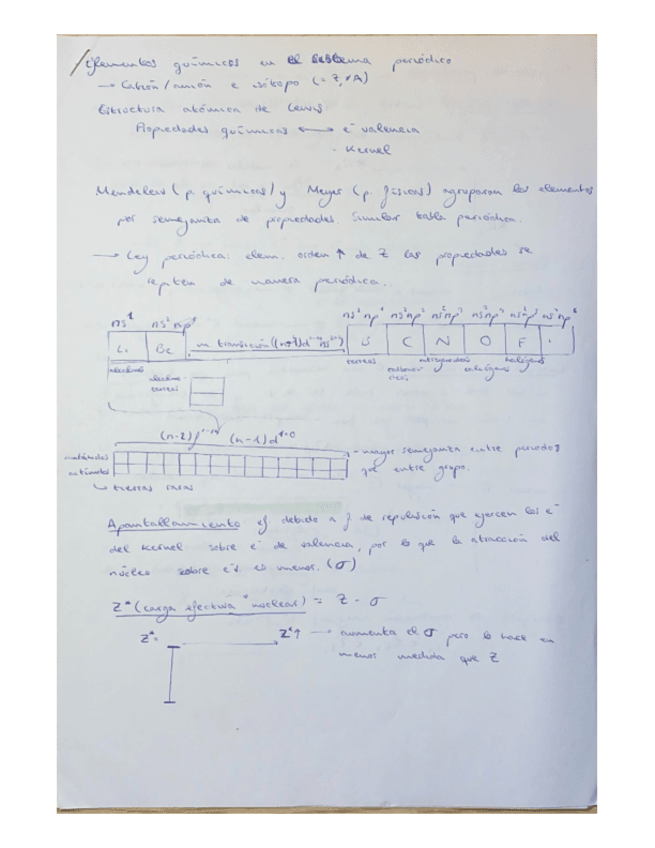 Elementos químicos en el sistema periódico
→ Catión/anión e isótopo (= Z, ≠A)
Estructura atómica de Lewis
Propiedades químicas ←→ e⁻ valencia
- Kernel
Mendeleiev (p. químicas) y Meyer (p. físicas) agruparon los elementos
por semejanza de propiedades. Similar tabla periódica.
→ Ley periódica: elem. orden ↑ de Z las propiedades se
repiten de manera periódica.
ns¹ ns² np¹ ns² np² ns² np³ ns² np⁴ ns² np⁵ ns² np⁶
Li Be m transición B C N O F
alcalinos térreos carbonoi- nitrogenoideos calcógenos halógenos
deos
alcalino-
térreos
(n-2)f (n-1)d
lantánidos
actínidos
- mayor semejanza entre periodos
que entre grupo.
↳ tierras raras
Apantallamiento ef debido a f de repulsión que ejercen los e⁻
del Kernel sobre e⁻ de valencia, por lo que la atracción del
núcleo sobre es menor. (σ)
Z* (carga efectiva nuclear) = Z - σ
Z*= Z*↑ → aumenta el σ pero lo hace en
menor medida que Z